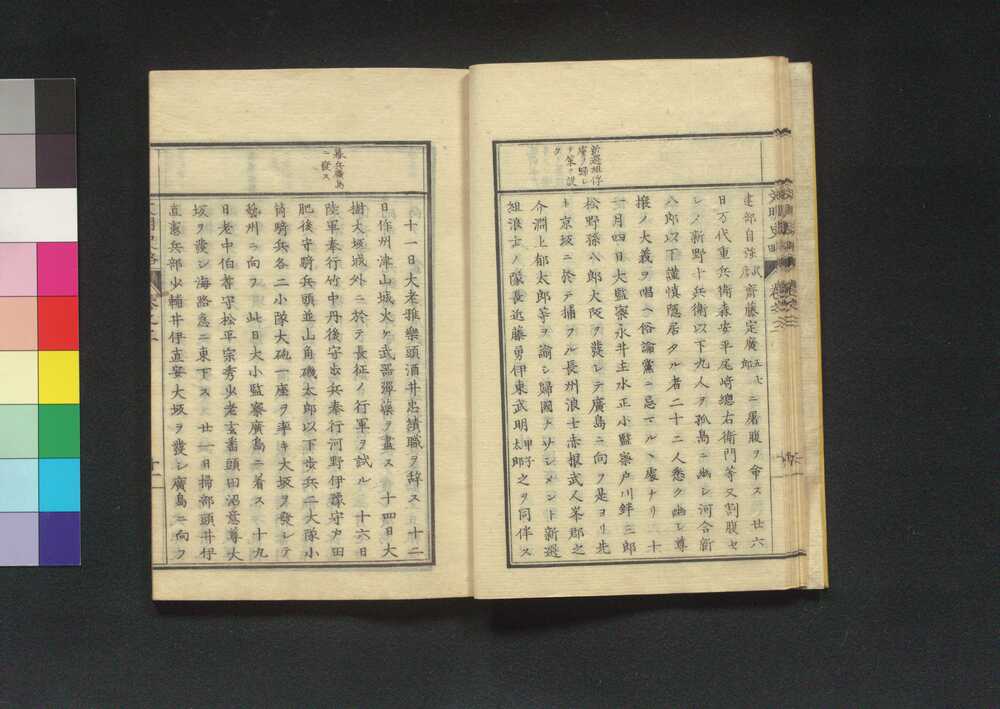 新選組俘
虜ヲ歸シ
ヲ策ヲ說
ク
建部自强 齋藤定廣 五七郎 ニ屠腹ヲ命ス 廿六
日万代重兵衛森安平尾﨑總右衛門等又割腹セ
シノ新野十兵衛以下九人ヲ孤島ニ幽シ河合新
八郎以下謹愼隱居タル者二十二人悉ク幽シ尊
攘ノ大義ヲ唱ヘ俗論黨ニ忌マルヽ處ナリ 十
一月四日大監察永井主水正小監察戸川鉡三郎
松野孫八郎大阪ヲ發シテ廣島ニ向フ是ヨリ先
キ京坂ニ於テ捕フル長州浪士赤根武人峯郡之
介淵上郁太郎等ヲ諭シ歸國ナサシメント新選
組浪士ノ隊長近藤勇伊東武明 甲子太郎 之ヲ同伴ス
幕兵廣島
ニ發ス
十一日大老雅樂頭酒井忠績職ヲ辞ス 十二
日作州津山城火ケ武器彈藥ヲ盡ス 十四日大
樹大坂城外ニ於テ長征ノ行軍ヲ試ル 十六日
陸軍奉行竹中丹後守歩兵奉行河野伊豫守戸田
肥後守騎兵頭並山角磯太郎以下歩兵二大隊小
筒騎兵各二小隊大砲一座ヲ率キ大坂ヲ發シテ
藝州ニ向フ 此日大小監察廣島ニ着ス 十九
日老中伯耆守松平宗秀少老玄蕃頭田沼意尊大
坂ヲ發シ海路急ニ東下ス 廿一日掃部頭井伊
直憲兵部少輔井伊直安大坂ヲ發シ廣島ニ向フ